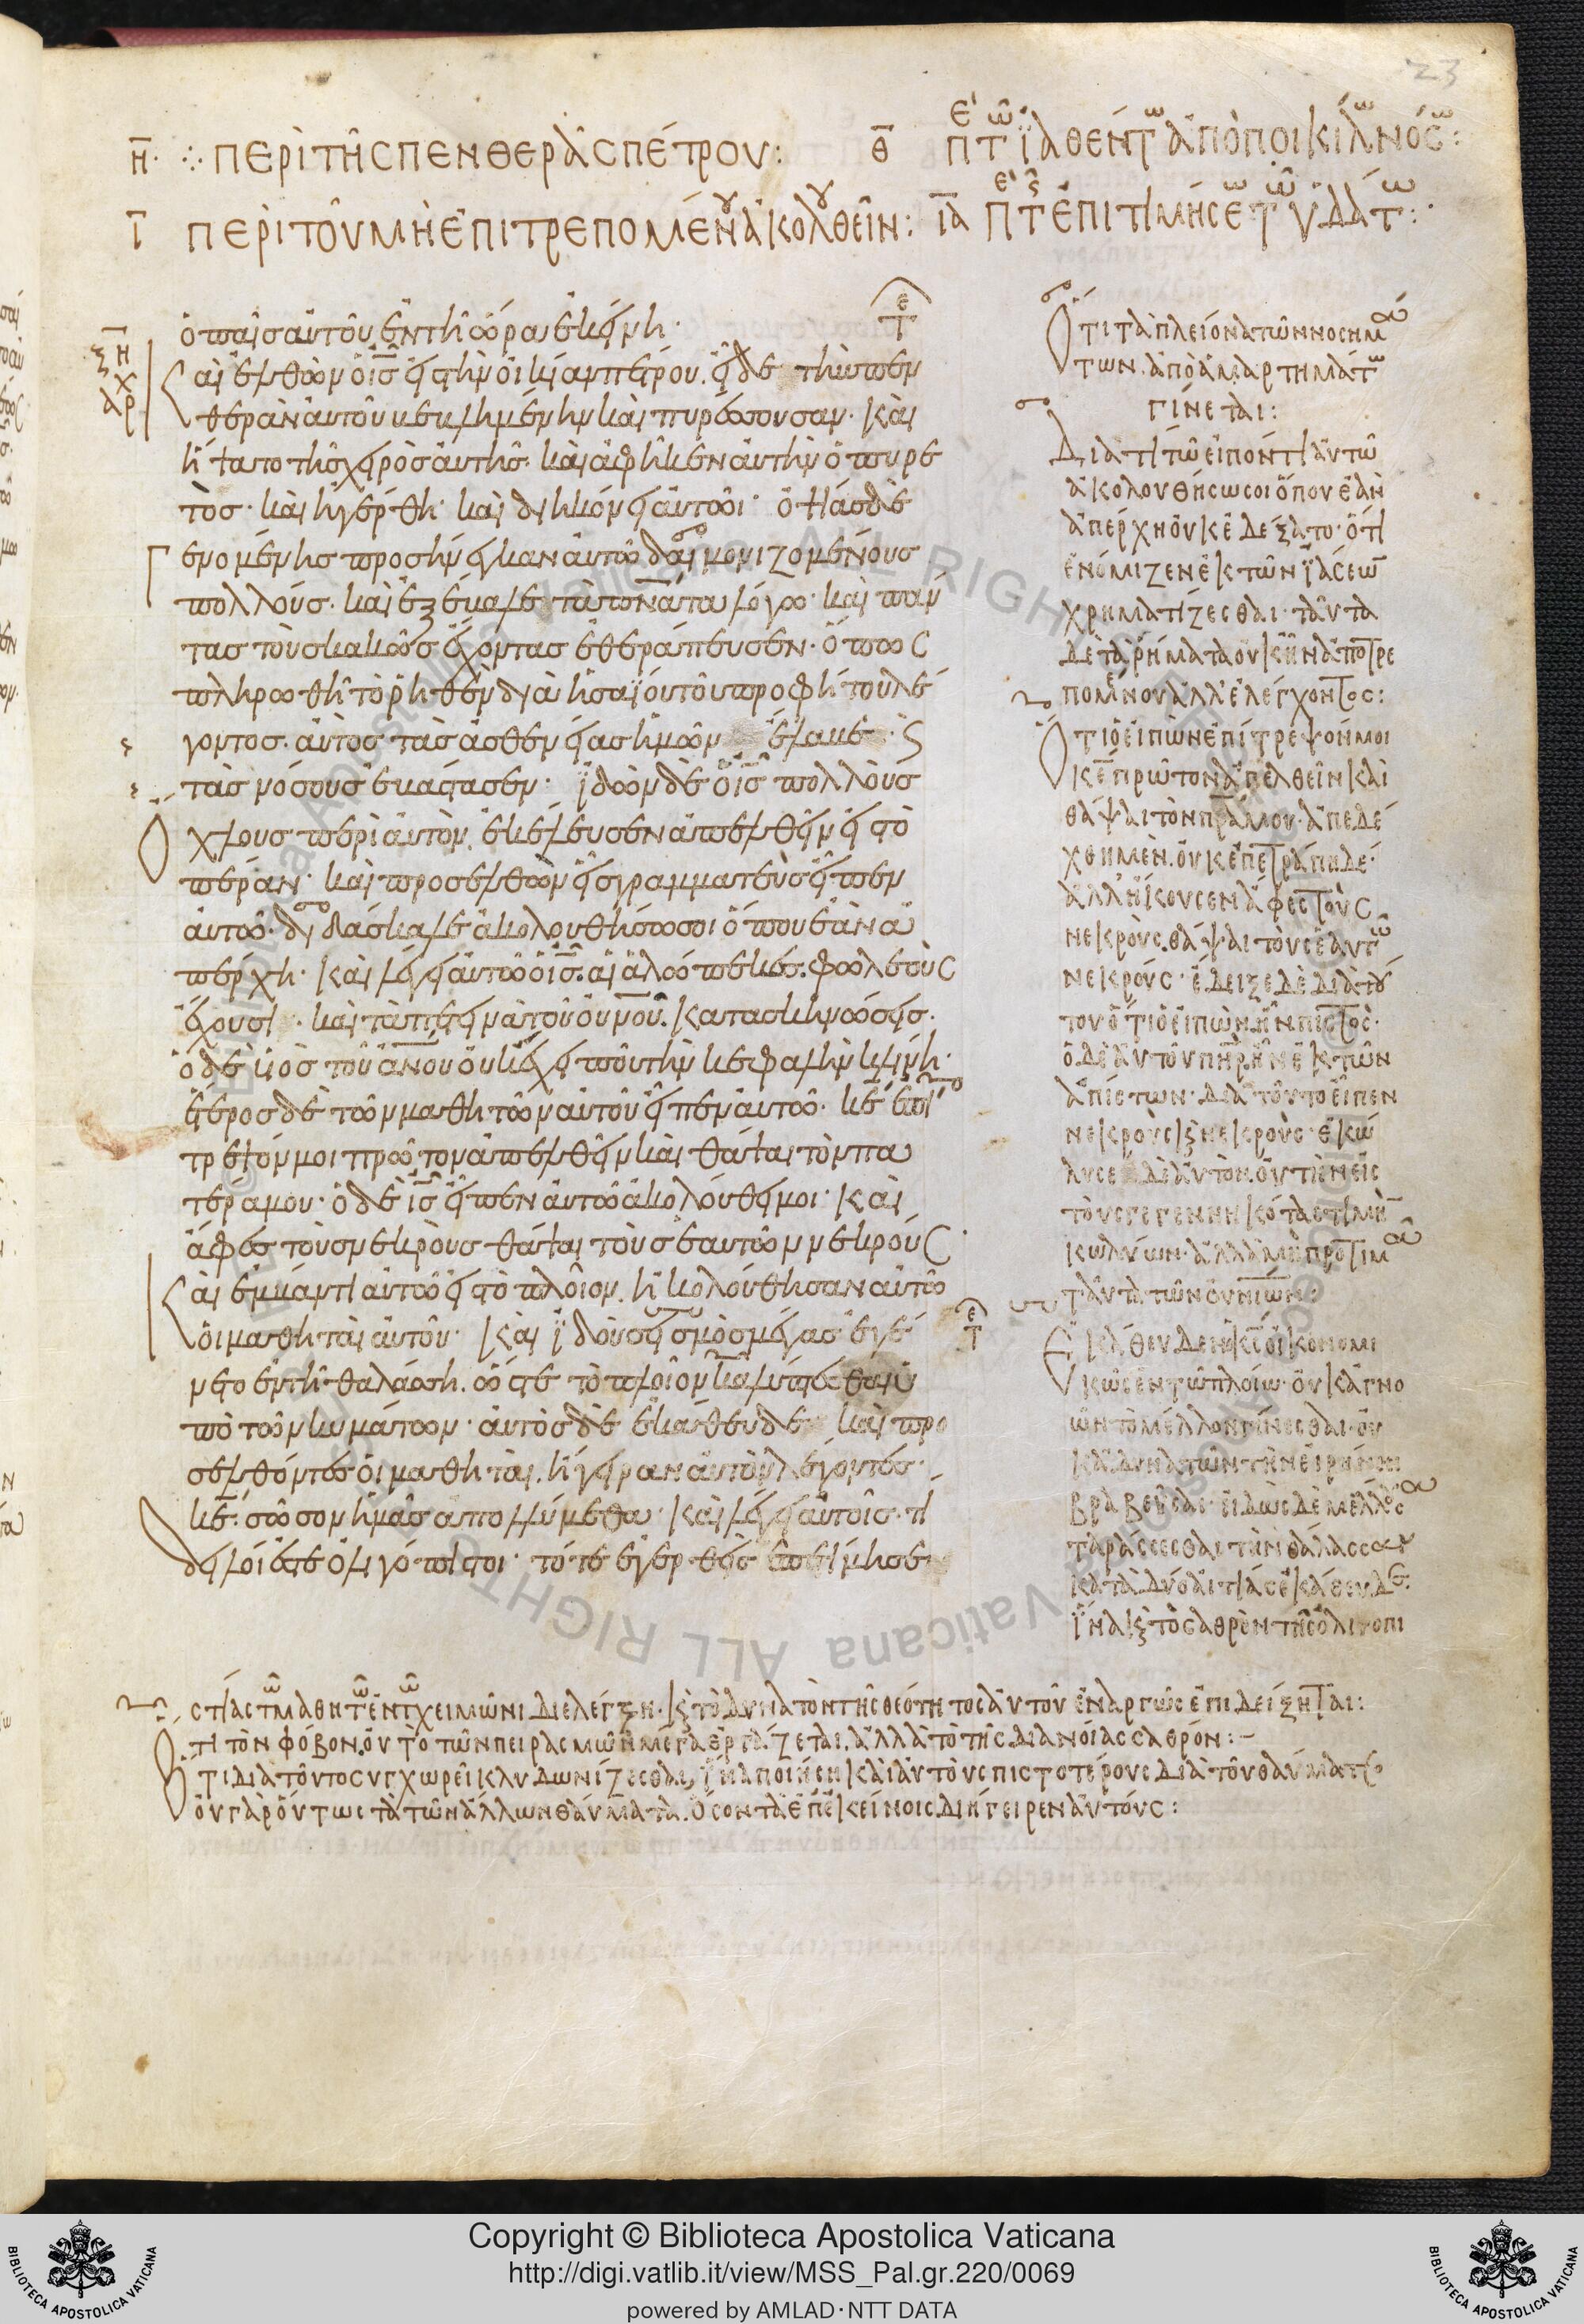 23
η· ∴ περὶ τῆς πενθερᾶς πέτρου: θ π τ ϊαθέντ ἀπὸ ποικίλ νόσ:
ι περὶ τοῦ μὴ ἐπιτρεπομένου ἀκολουθεῖν: ια π τ ἐπιτιμήσε τ ὑδάτ:
ὁ παῖς αὐτοῦ ἐν τῆ ὥρα ἐκείνη·
ξη
χ
αρ
και ἐλθὼν ὁ ις εἰς τὴν οἰκίαν πέτρου. εἶδε τὴν πεν
θερὰν αὐτοῦ βεβλημένην καὶ πυρέσσουσαν· καὶ
ἥψατο τῆς χειρὸς αὐτῆς· καὶ ἀφῆκεν αὐτὴν ὁ πυρε
τὸς· καὶ ἠγέρθη· καὶ διηκόνει αὐτῶι· ὀψίας δὲ
γενομένης προσήνεγκαν αὐτῶ δαιμονιζομένους
πολλούς· καὶ ἐξέβαλε τὰ πνατα λόγω· καὶ πάν
τας τοὺς κακῶς ἔχοντας ἐθεράπευσεν· ὅπως
πληρωθῆ τὸ ῥηθὲν διὰ ἠσαΐου τοῦ προφήτου λέ
γοντος· αὐτὸς τὰς ἀσθενείας ἡμῶν ἔλαβε· ϛ
τὰς νόσους ἐβάστασεν· ϊδὼν δὲ ὁ ις πολλοὺς
ὄχλους περὶ αὐτὸν. ἐκέλευσεν ἀπελθεῖν εἰς τὸ
πέραν· καὶ προσελθὼν εἷς γραμματεὺς εἶπεν
αὐτῶ· διδάσκαλε ἀκολουθήσω σοι ὅπου ἐὰν ἀ
πέρχη· καὶ λέγει αὐτῶ ὁ ις· αἱ ἀλώπεκες φωλεοὺς
ἔχουσι· καὶ τὰ πετεινὰ τοῦ οὐνου κατασκηνώσεις·
ὁ δὲ υἱὸς τοῦ ανου οὐκ ἔχει ποῦ τὴν κεφαλὴν κλίνη·
ἕτερος δὲ τῶν μαθητῶν αὐτοῦ εἶπεν αὐτῶ· κε ἐπί
τρεψόν μοι πρῶτον ἀπελθεῖν καὶ θάψαι τὸν πα
τέρα μου· ὁ δὲ ις εἶπεν αὐτῶ ἀκολούθει μοι· καὶ
ἄφες τοὺς νεκροὺς θάψαι τοὺς ἑαυτῶν νεκρούς·
καὶ ἐμβάντι αὐτῶ εἰς τὸ πλοῖον. ἠκολούθησαν αὐτῶ
οἱ μαθηταὶ αὐτοῦ· καὶ ϊδοὺ σεισμὸς μέγας ἐγέ
νετο ἐν τῆ θαλάσση. ὥστε τὸ πλοῖον καλύπτεσθαι ὑ
πὸ τῶν κυμάτων· αὐτὸς δὲ ἐκάθευδε καὶ προ
σελθόντες οἱ μαθηταὶ. ἤγειραν αὐτὸν λέγοντες·
κε· σῶσον ἡμᾶς απολλύμεθα· καὶ λέγει αὐτοῖς· τί
δειλοί ἐστε ὀλιγόπιστοι· τότε ἐγερθεὶς ἐπετίμησε
Ὅτι τὰ πλείονα τῶν νοσημά
των. ἀπὸ ἁμαρτημάτ
γίνεται:
Διατί τῶ εἰπόντι αὐτῶ
ἀκολουθήσω σοι ὅπου ἐὰν
ἀπέρχη οὐκ ἐδέξατο· ὅτι
ἐνόμιζεν ἐκ τῶν ϊάσεω
χρηματίζεσθαι· ταῦτα
δὲ τὰ ῥήματα οὐκ ἦν ἀποτρε
πομένου ἀλλ' ἐλέγχοντος:
Ὅτι ὁ εἰπὼν ἐπίτρεψόν μοι
κε πρῶτον ἀπελθεῖν καὶ
θάψαι τὸν πρα μου· ἀπεδέ
χθη μὲν. οὐκ ἐπετράπη δέ·
ἀλλ' ἤκουσεν ἄφες τοὺς
νεκροὺς θάψαι τοὺς ἑαυτ
νεκρούς· ἔδειξε δὲ διὰ τού
του ὅτι ὁ εἰπὼν. ἦν πιστὸς·
ὁ δὲ αὐτοῦ πηρ. ἦν ἐκ τῶν
ἀπίστων· διὰ τοῦτο εἶπεν
νεκροὺς ϗ νεκροὺς· ἐκώ
λυσε δὲ αὐτὸν. οὐ τὴν εἰς
τοὺς γεγεννηκότας τιμὴ
κωλύων· ἀλλὰ μὴ προτιμᾶ
ταῦτα τῶν οὐνιων:
Ἐκάθευδεν κς οἰκονομι
κῶς ἐν τῶ πλοίω· οὐκ ἀγνο
ῶν τὸ μέλλον γίνεσθαι· οὐ
κ ἀδυνατῶν τὴν εἰρήνην
βραβεῦσαι· εἰδὼς δὲ μέλλουσα
ταράσσεσθαι τὴν θάλασσαν
ἵνα ϗ τὸ σαθρὸν τῆς ὀλιγοπι
στίας τῶν μαθητῶν ἐν τῶ χειμῶνι διελέγξη· ϗ τὸ δυνατὸν τῆς θεότητος αὐτοῦ ἐναργῶς ἐπιδείξηται:
Ὅτι τὸν φόβον. οὐ τὸ τῶν πειρασμῶν μέγα ἐργάζεται. ἀλλὰ τὸ τῆς διανοίας σαθρόν:–
Ὅτι διὰ τοῦτο συγχωρεῖ κλυδωνίζεσθαι, ἵνα ποιήση καὶ αὐτοὺς πιστοτέρους διὰ τοῦ θαύματος
οὐ γὰρ οὕτως τὰ τῶν ἄλλων θαύματα. ὅσον τὰ ἐπ' ἐκείνοις διήγειρεν αὐτούς:
Copyright © Biblioteca Apostolica Vaticana
http://digi.vatlib.it/view/MSS_Pal.gr.220/0069
powered by AMLAD·NTT DATA
BIBLIOTECA APOSTOLICA VATICANA
BIBLIOTECA APOSTOLICA VATICANA